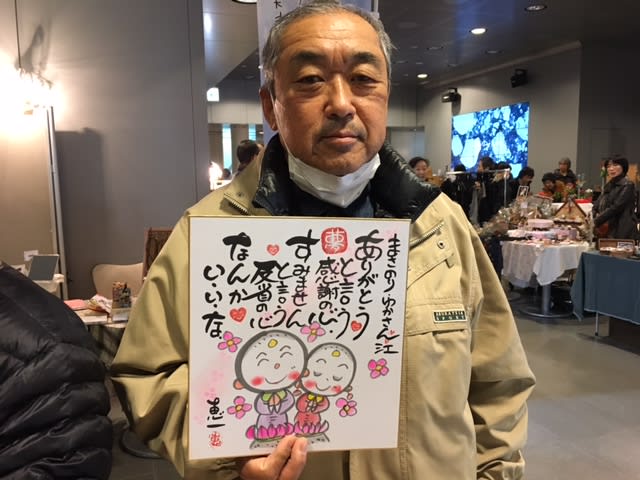 まさのり ゆかさん江
ありがとう
と言う
感謝の心
すみません
と言う
反省の心
なんか
いいな
恵一
夢